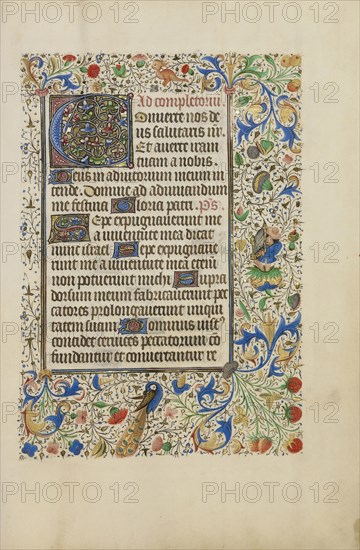 Ad completoriu.
Converte nos de
us salutaris nr.
Et averte iram
tuam a nobis.
Deus in adiutorium meum in
tende. Domine ad adiuvandum
me festina Gloria patri. Ps.
Sepe expugnaverunt me
a iuventute mea dicat
nunc israel Sepe expugnave
runt me a iuventute mea eteni
non potuerunt michi Supra
dorsum meum fabricaverunt pec
catores prolongaverunt iniqui
tatem suam Dominus iust
concidet cervices peccatorum co
fundantur et convertantur re
PHOTO 12 PHOTO 12 PHOTO 12